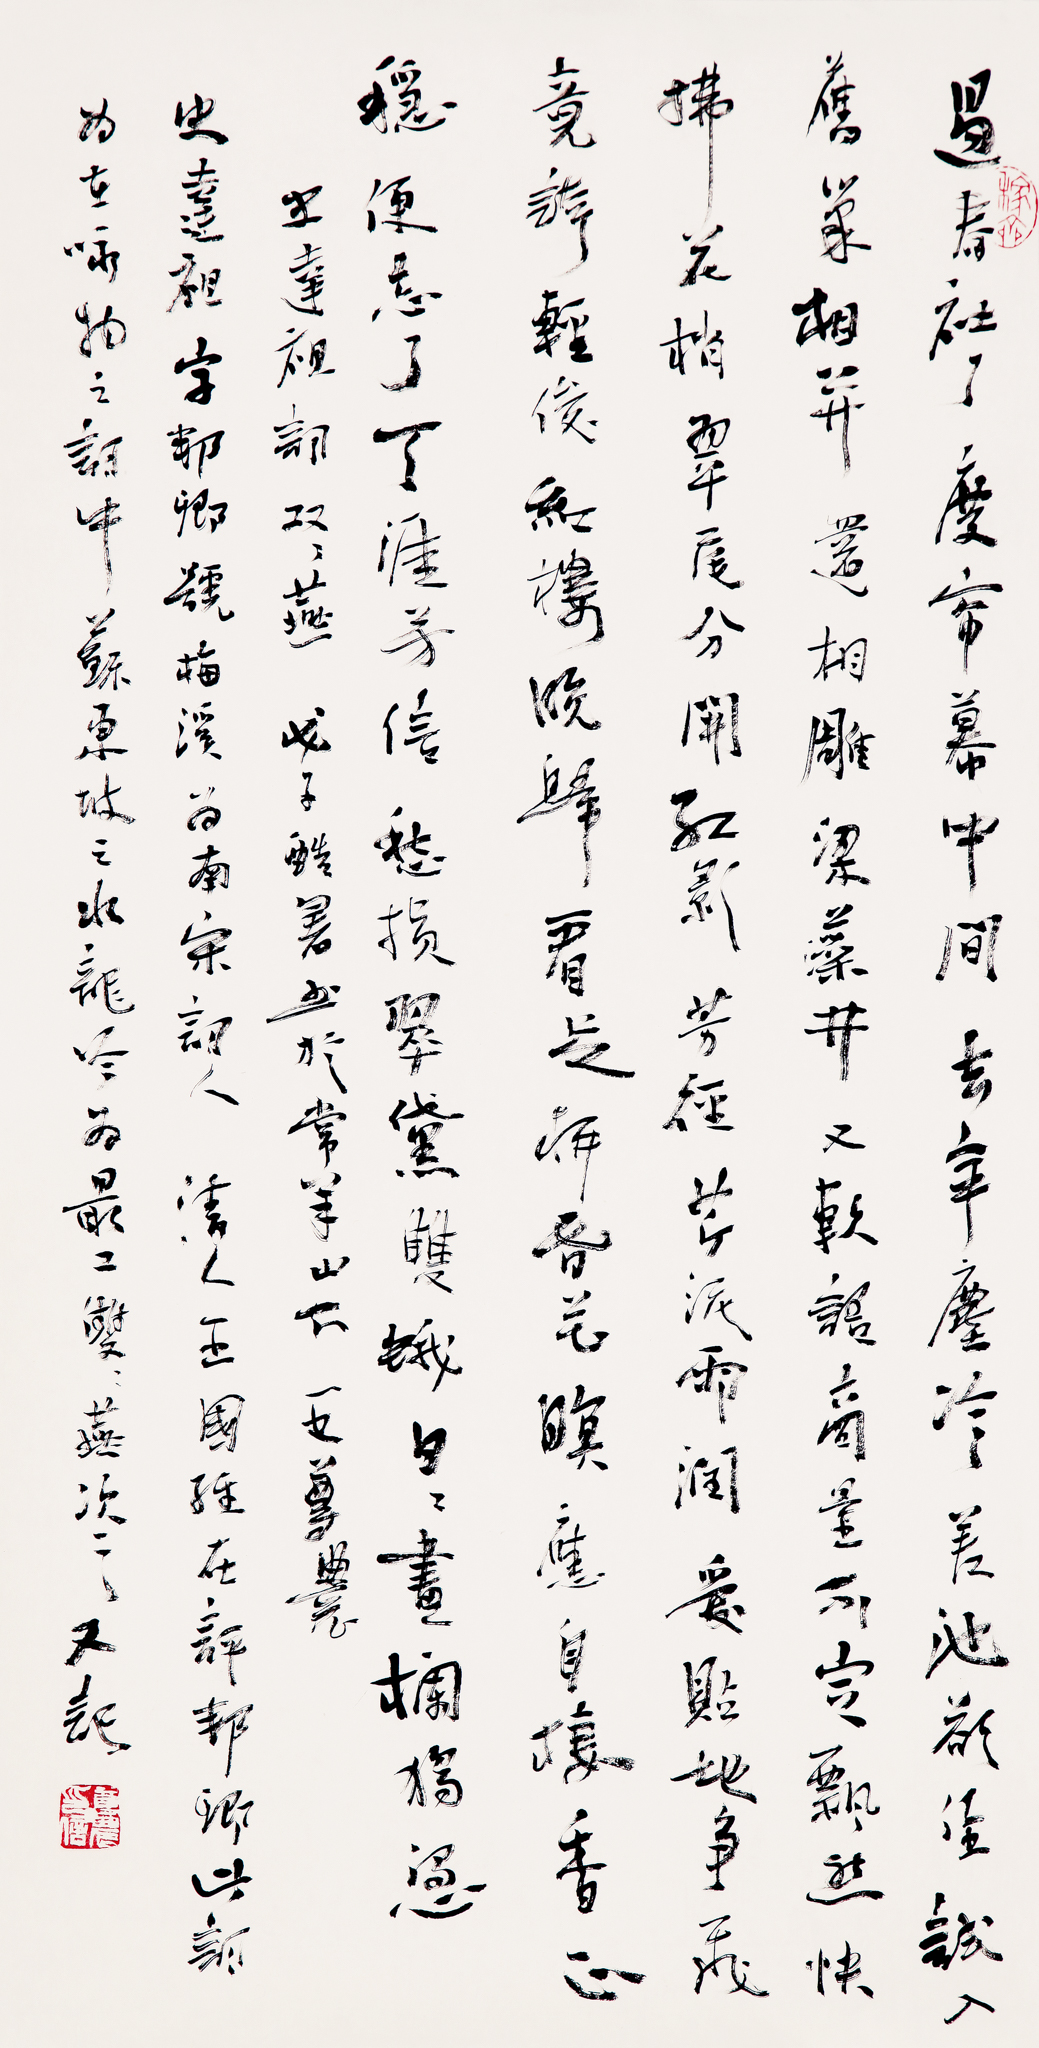 過春社了度帘幕中間去年塵冷差池欲住試入
舊巢相並還相雕梁藻井又軟語商量不定飄然快
拂花梢翠尾分開紅影芳徑芹泥雨潤愛貼地爭飛
竟誇輕俊紅樓晚歸看足柳昏花暝應自棲香正
穩便忘了天涯芳信愁損翠黛雙蛾日日畫欄獨憑
史達祖詞雙雙燕 戊子酷暑書於常羊山下 一止尊農
史達祖字邦卿號梅溪為南宋詞人 清人王國維在評邦卿此詞
為在咏物之詞中蘇東坡之水龍吟為最工雙雙燕次之又記